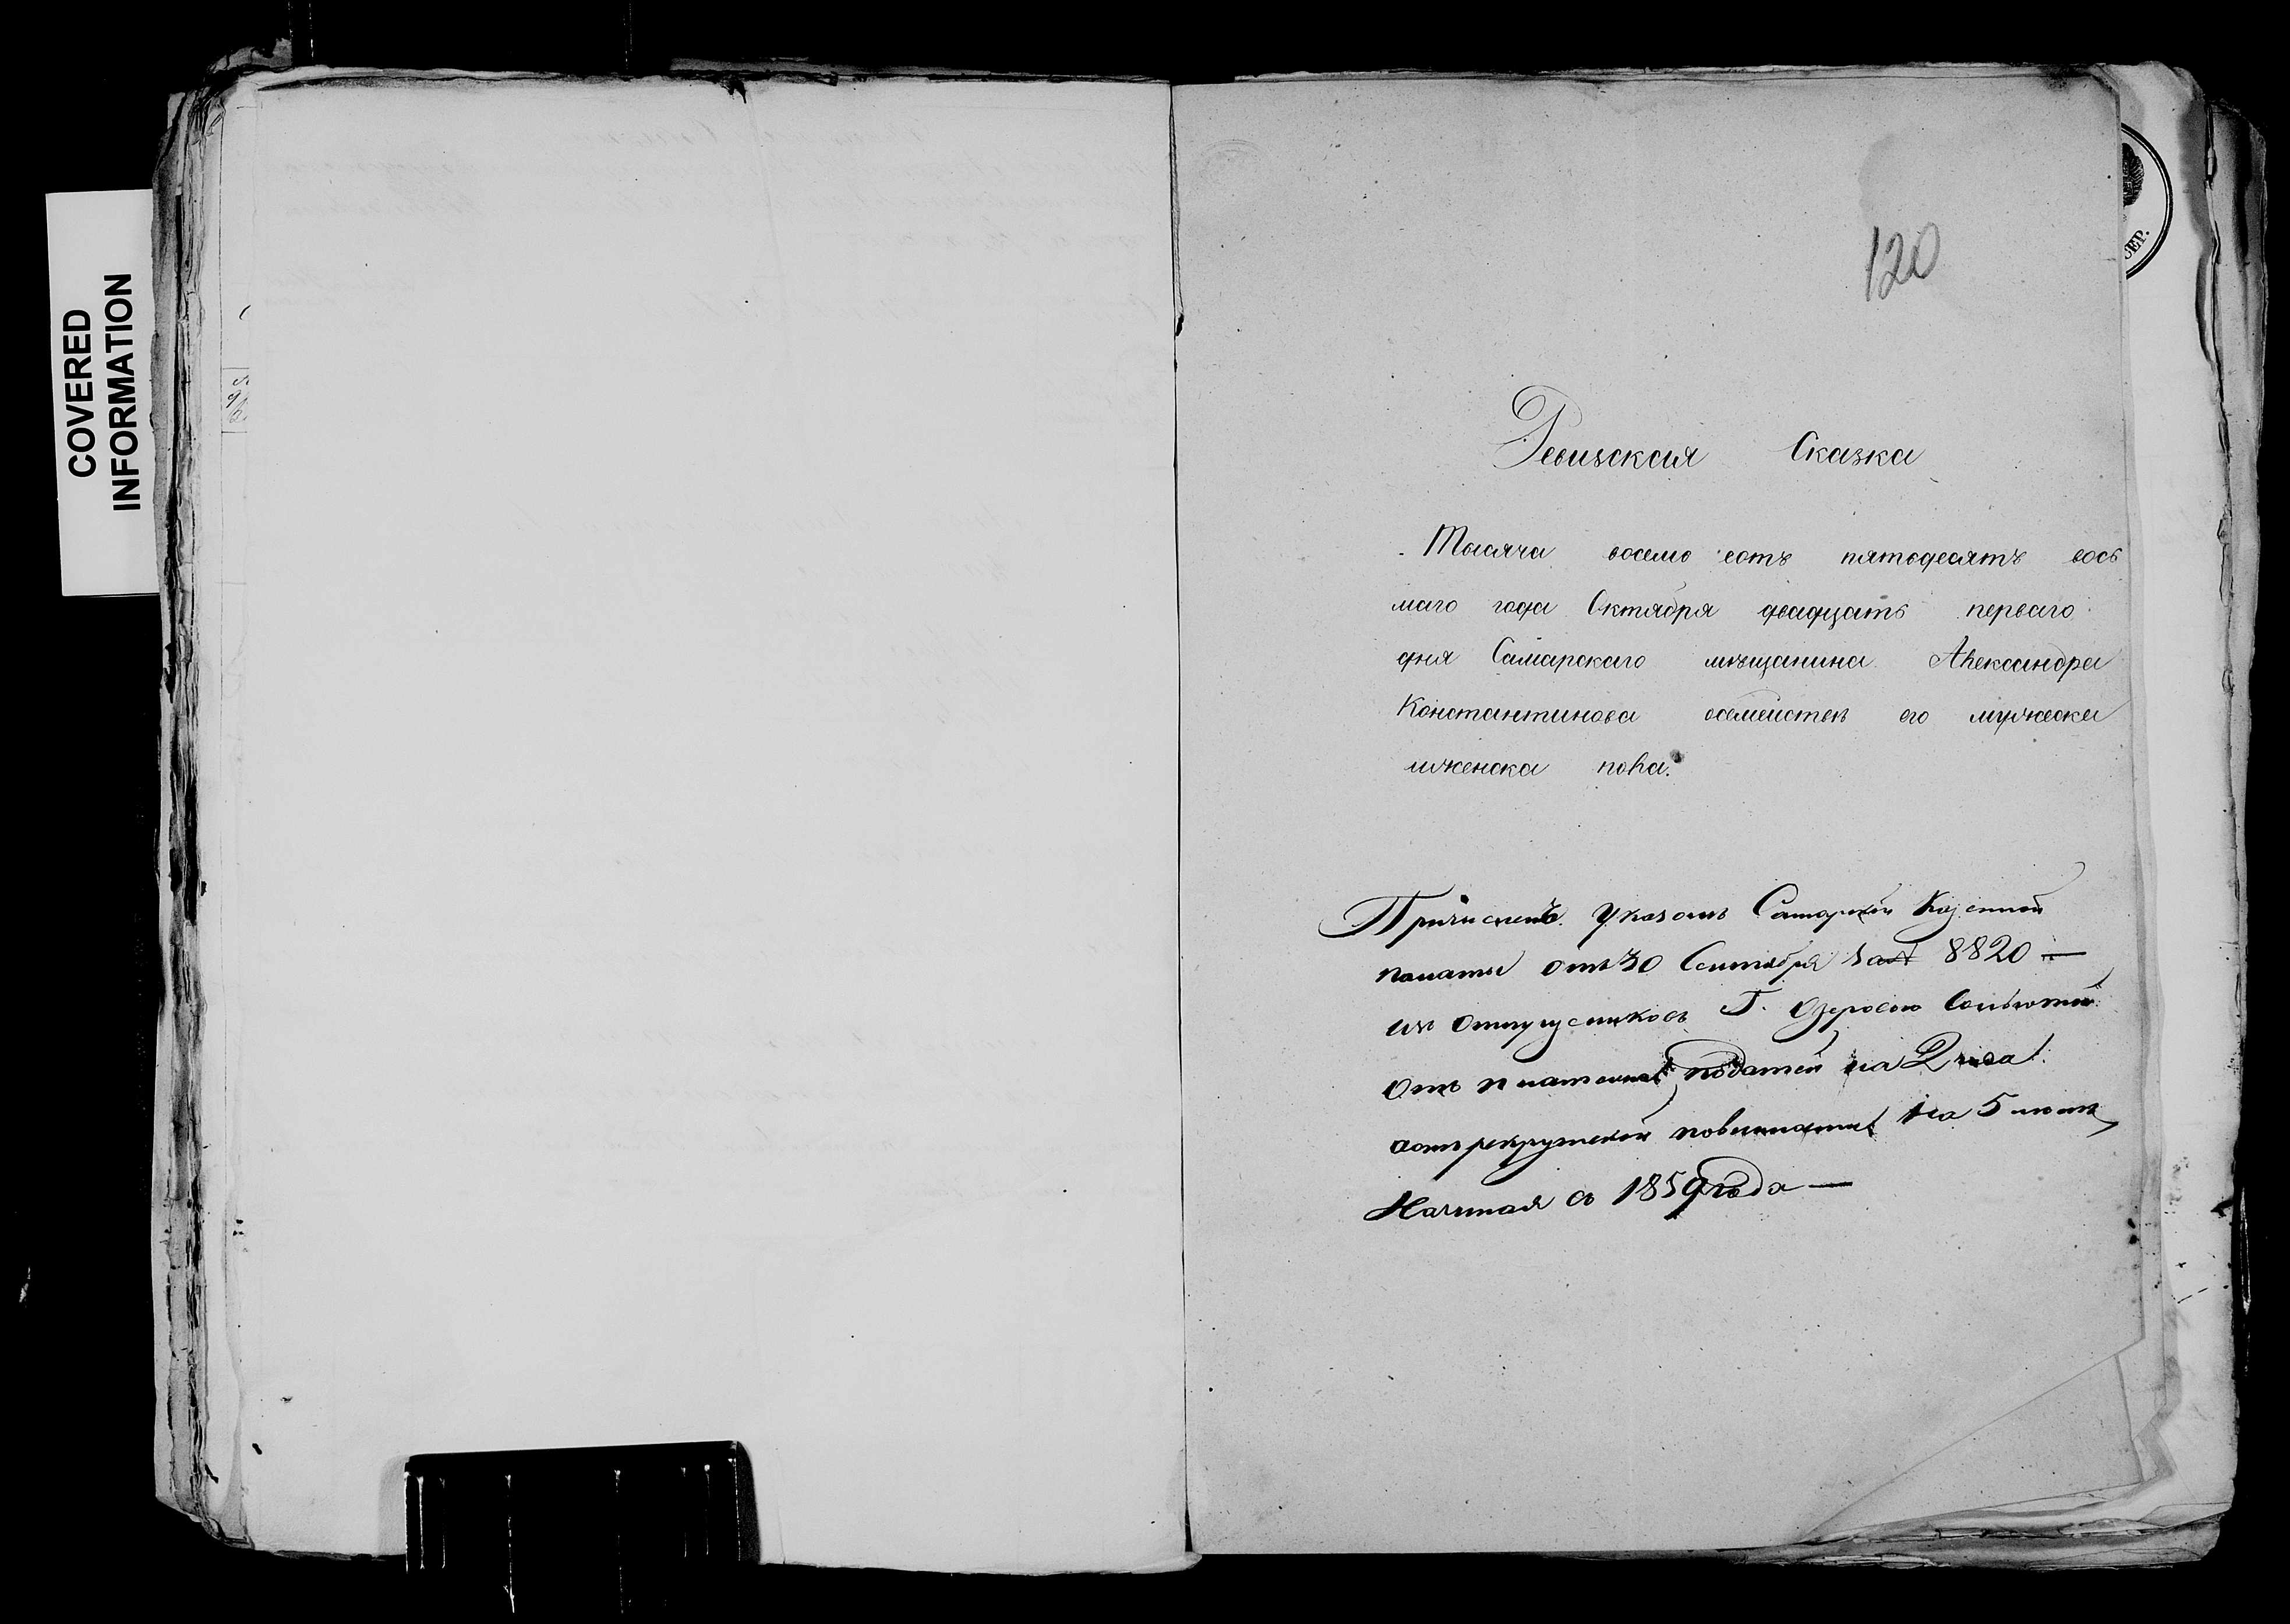 COVERED
INFORMATION
120
ЗЕР.
Ревизская Сказка
Тысяча восемь сотъ пятьдесятъ вось
маго года Октября двадцать перваго
дня Самарскаго мѣщанина Александра
Константинова осемействѣ его мужеска
иженска пола.
Причисленъ Указомъ Самарской Казенной
палаты отъ 30 Сентября за № 8820 —
изъ отпущенниковъ Г. Озерова Сольготой
отъ платежа податей на 2 года
аотъ рекрутской повинности на 5 летъ
Начиная съ 1859 года —